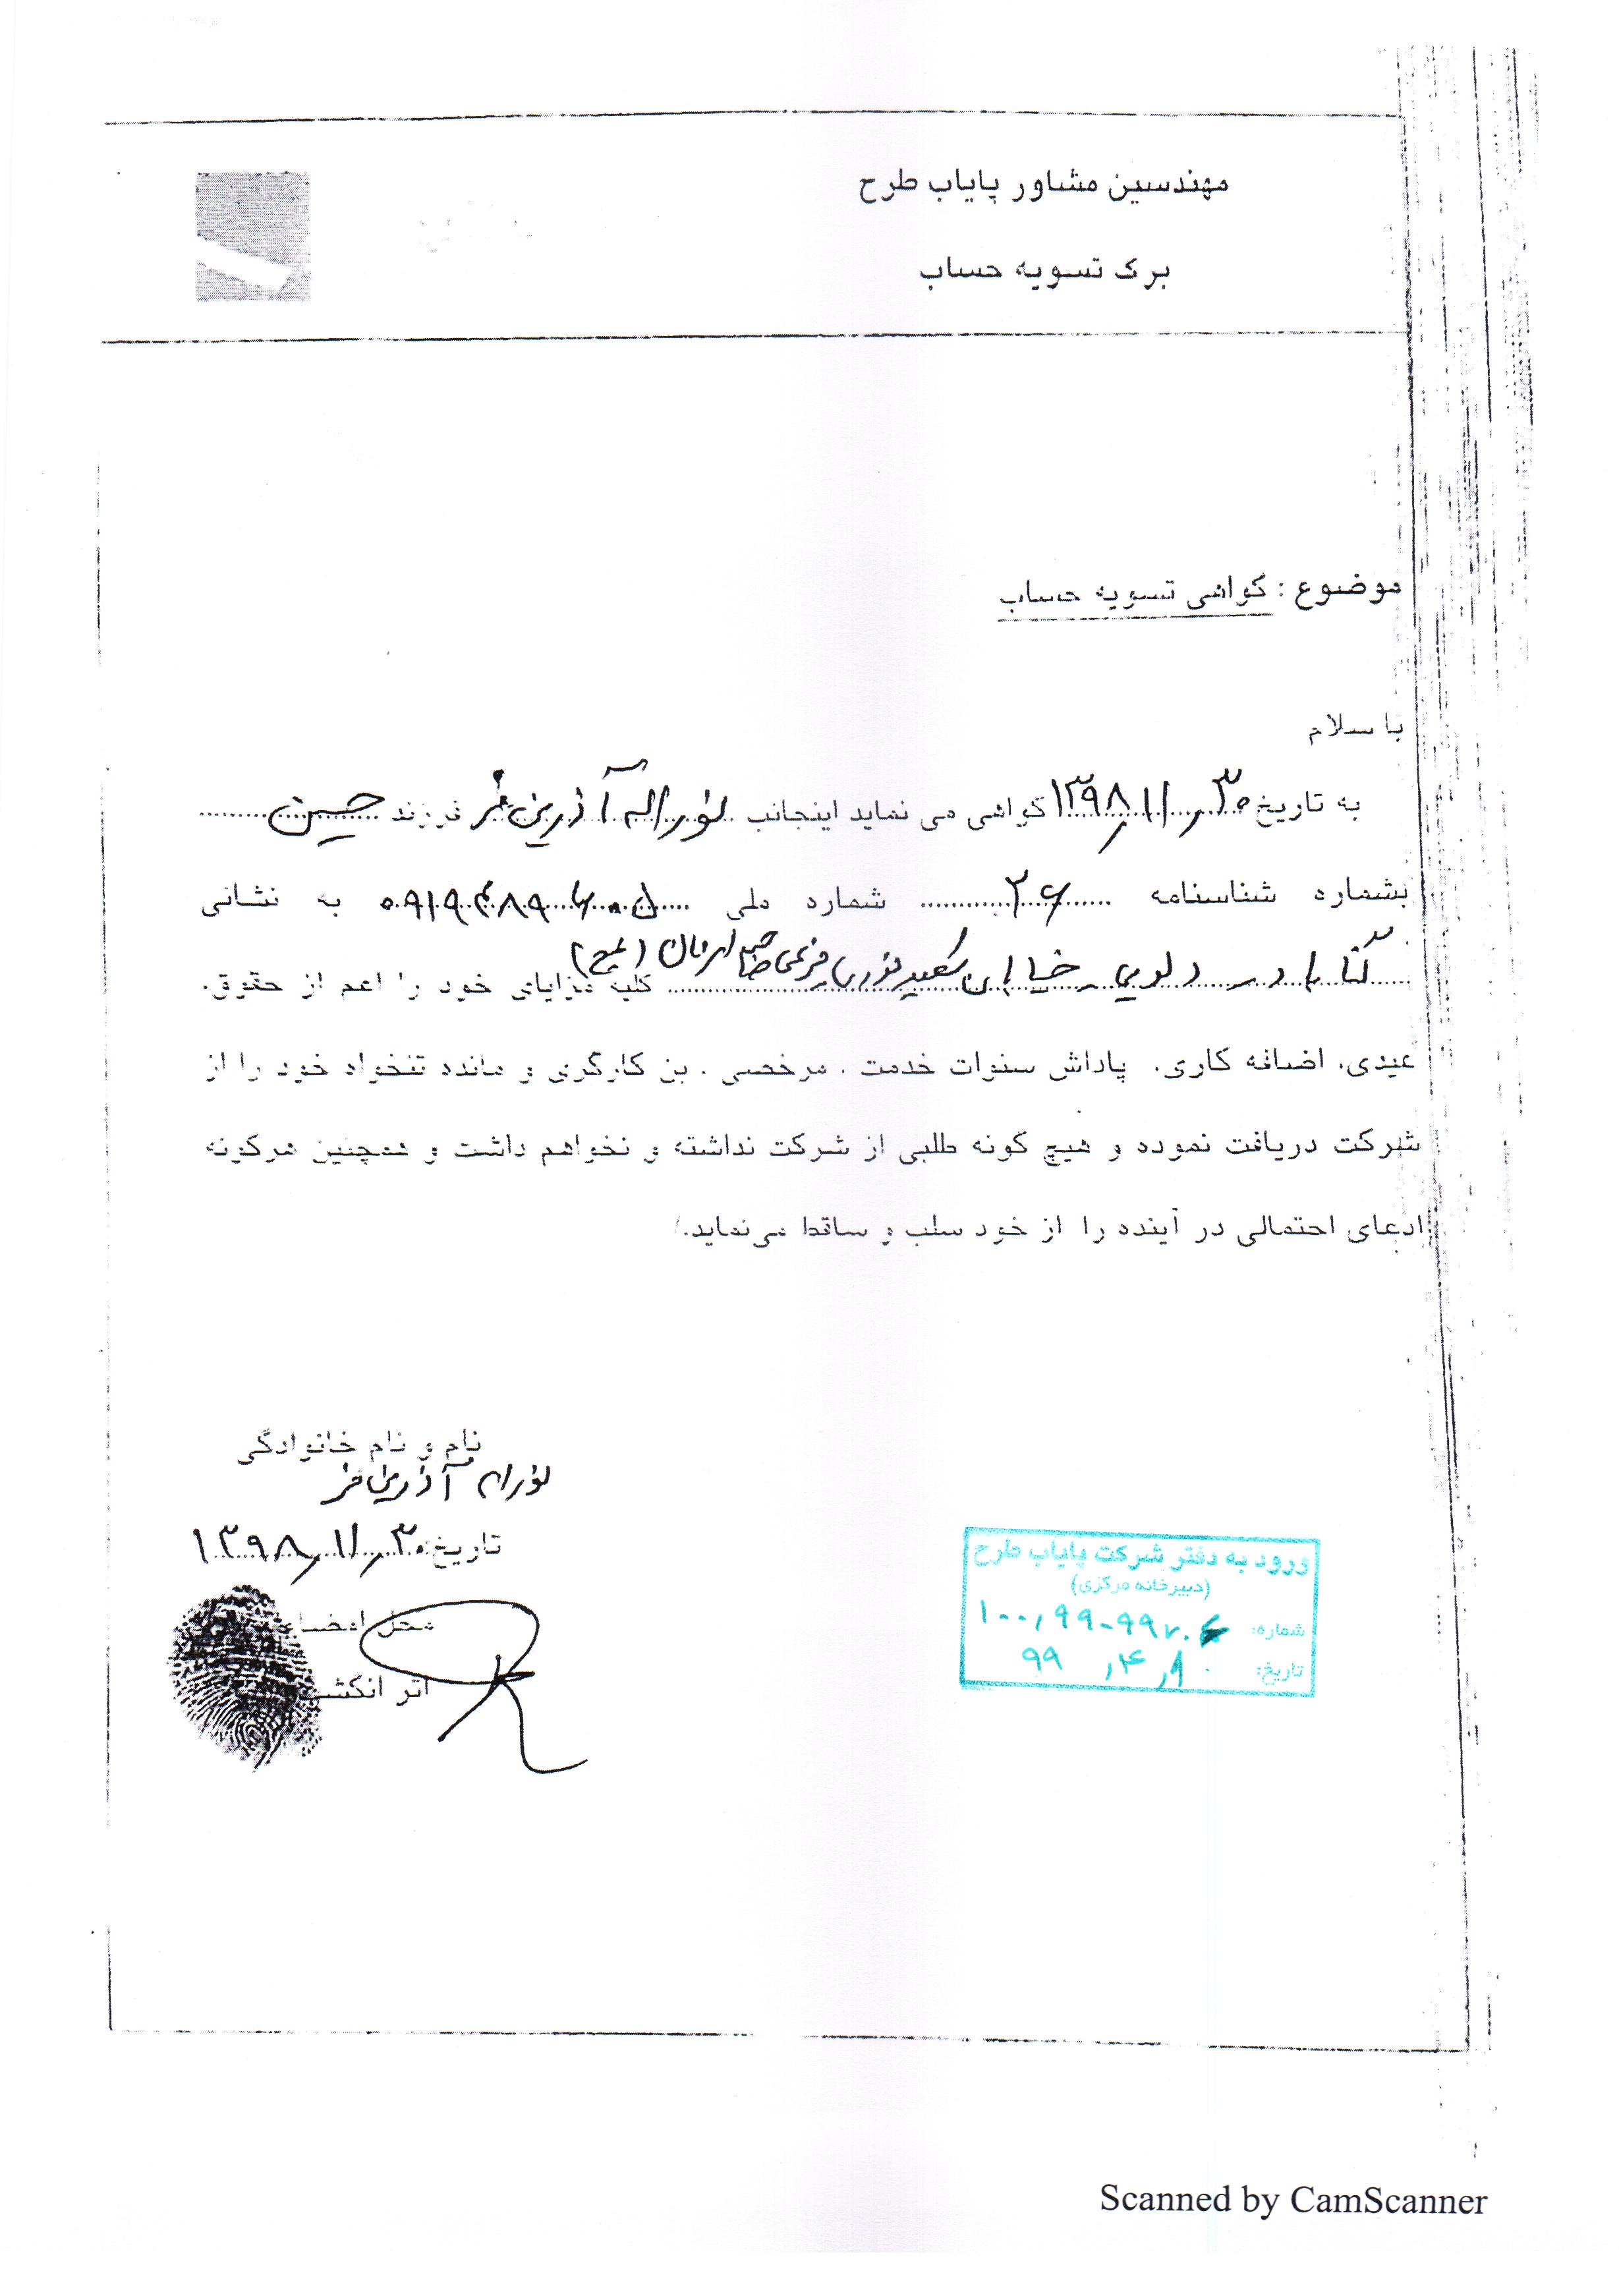 مهندسین مشاور پایاب طرح
برگ تسویه حساب
موضوع : گواهی تسویه حساب
با سلام
به تاریخ ۱۳۹۸/۱۱/۳۰ گواهی می نماید اینجانب نوراله آذرین فر فرزند حسین
بشماره شناسنامه ۳۶ شماره ملی ۰۹۱۹۴۸۹۶۰۰۵ به نشانی
گناباد - دلویی - خیابان سعید نوری فرعی صاحب الزمان (عج) کلیه مزایای خود را اعم از حقوق،
عیدی، اضافه کاری، پاداش سنوات خدمت ، مرخصی ، بن کارگری و مانده تنخواه خود را از
شرکت دریافت نموده و هیچ گونه طلبی از شرکت نداشته و نخواهم داشت و همچنین هرگونه
ادعای احتمالی در آینده را از خود سلب و ساقط می‌نماید./
نام و نام خانوادگی
نوراله آذرین فر
تاریخ: ۱۳۹۸/۱۱/۳۰
محل امضا
اثر انگشت
ورود به دفتر شرکت پایاب طرح
(دبیرخانه مرکزی)
شماره:
تاریخ: ۹۹/۴/۸
Scanned by CamScanner